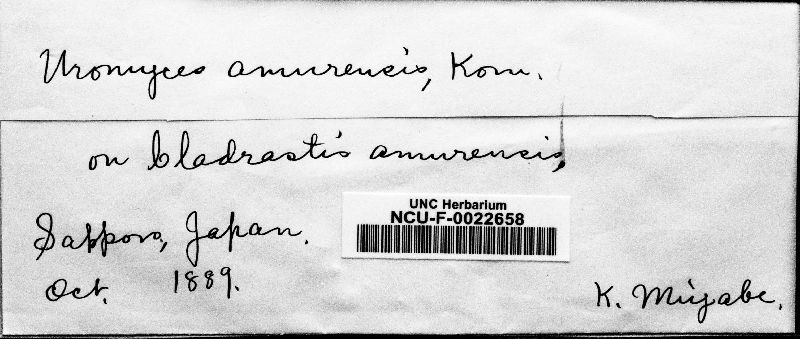 Uromyces amurensis, Kom.
on Cladrastis amurensis,
UNC Herbarium
NCU-F-0022658
Sapporo, Japan.
Oct. 1889.
K. Miyabe.